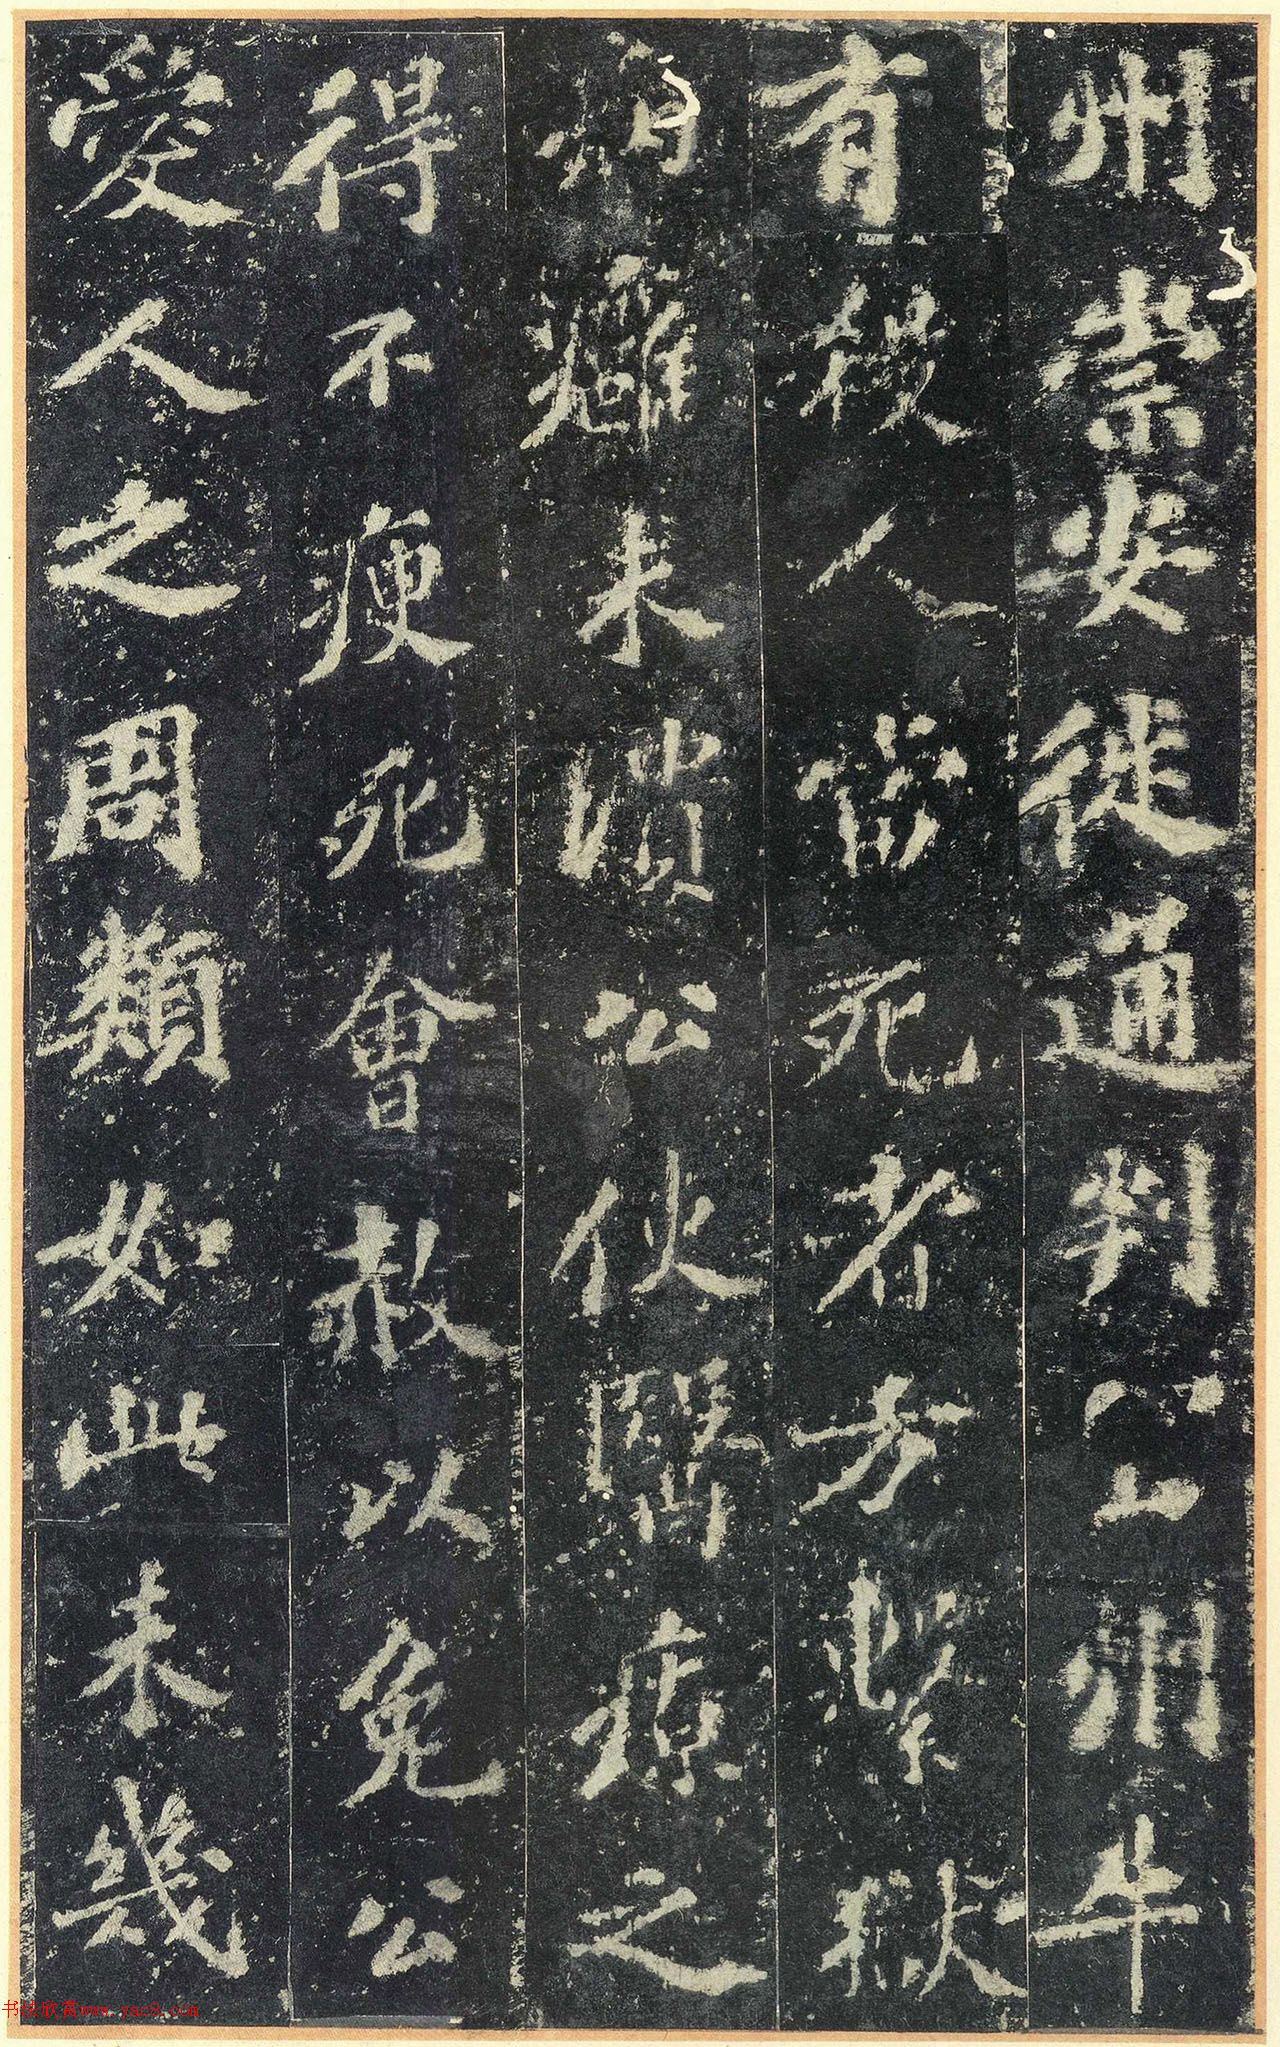 州崇安徙通判宜州卒
有殺人當死者方繫獄
病癰未潰公使醫療之
得不瘐死會赦以免公
愛人之周類如此未幾
书法欣赏www.yac8.com